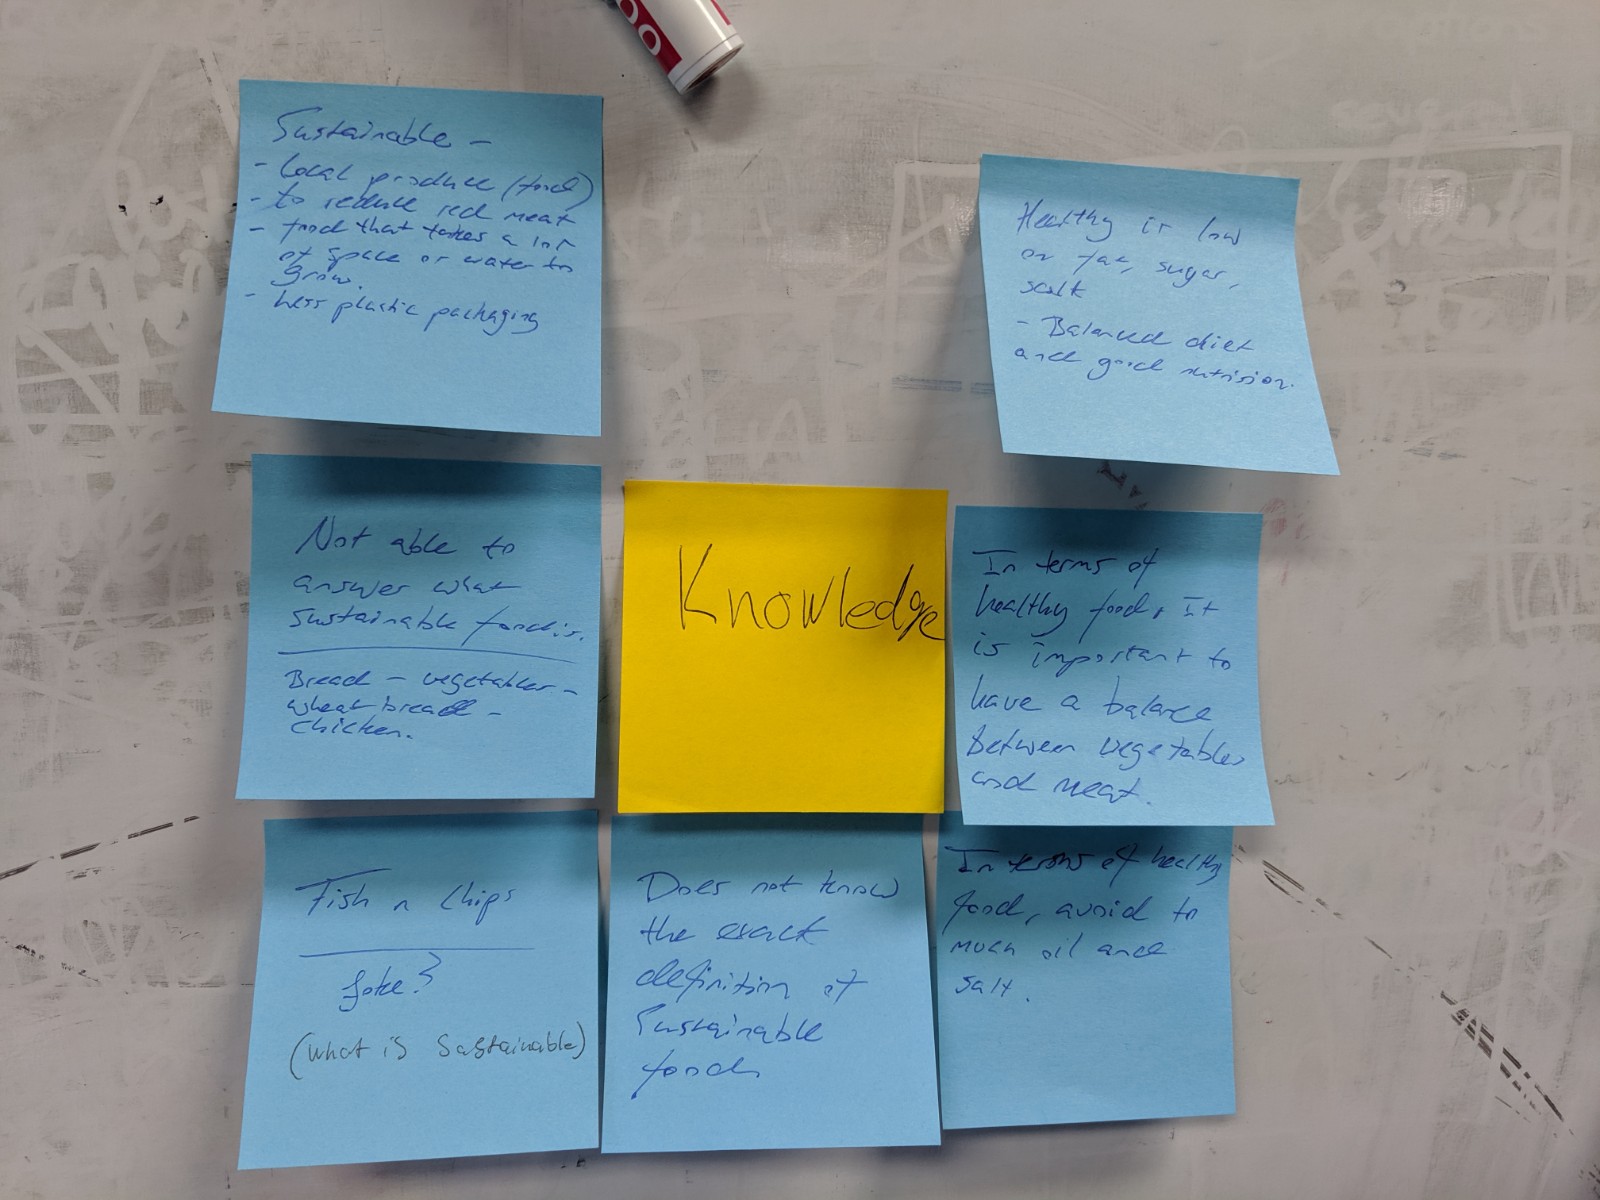 Sustainable -
- Local produce (food)
- to reduce red meat
- food that takes a lot
of space or water to
grow.
- Less plastic packaging
Healthy is low
on fat, sugar,
salt
- Balanced diet
and good nutrision.
Not able to
answer what
sustainable food is.
Bread - vegetables -
wheat bread -
chicken.
Knowledge
In terms of
healthy food, It
is important to
have a balance
between vegetables
and meat.
Fish n chips
joke?
(what is sustainable)
Does not know
the exact
definition of
Sustainable
food
In terms of healthy
food, avoid to
much oil and
salt.